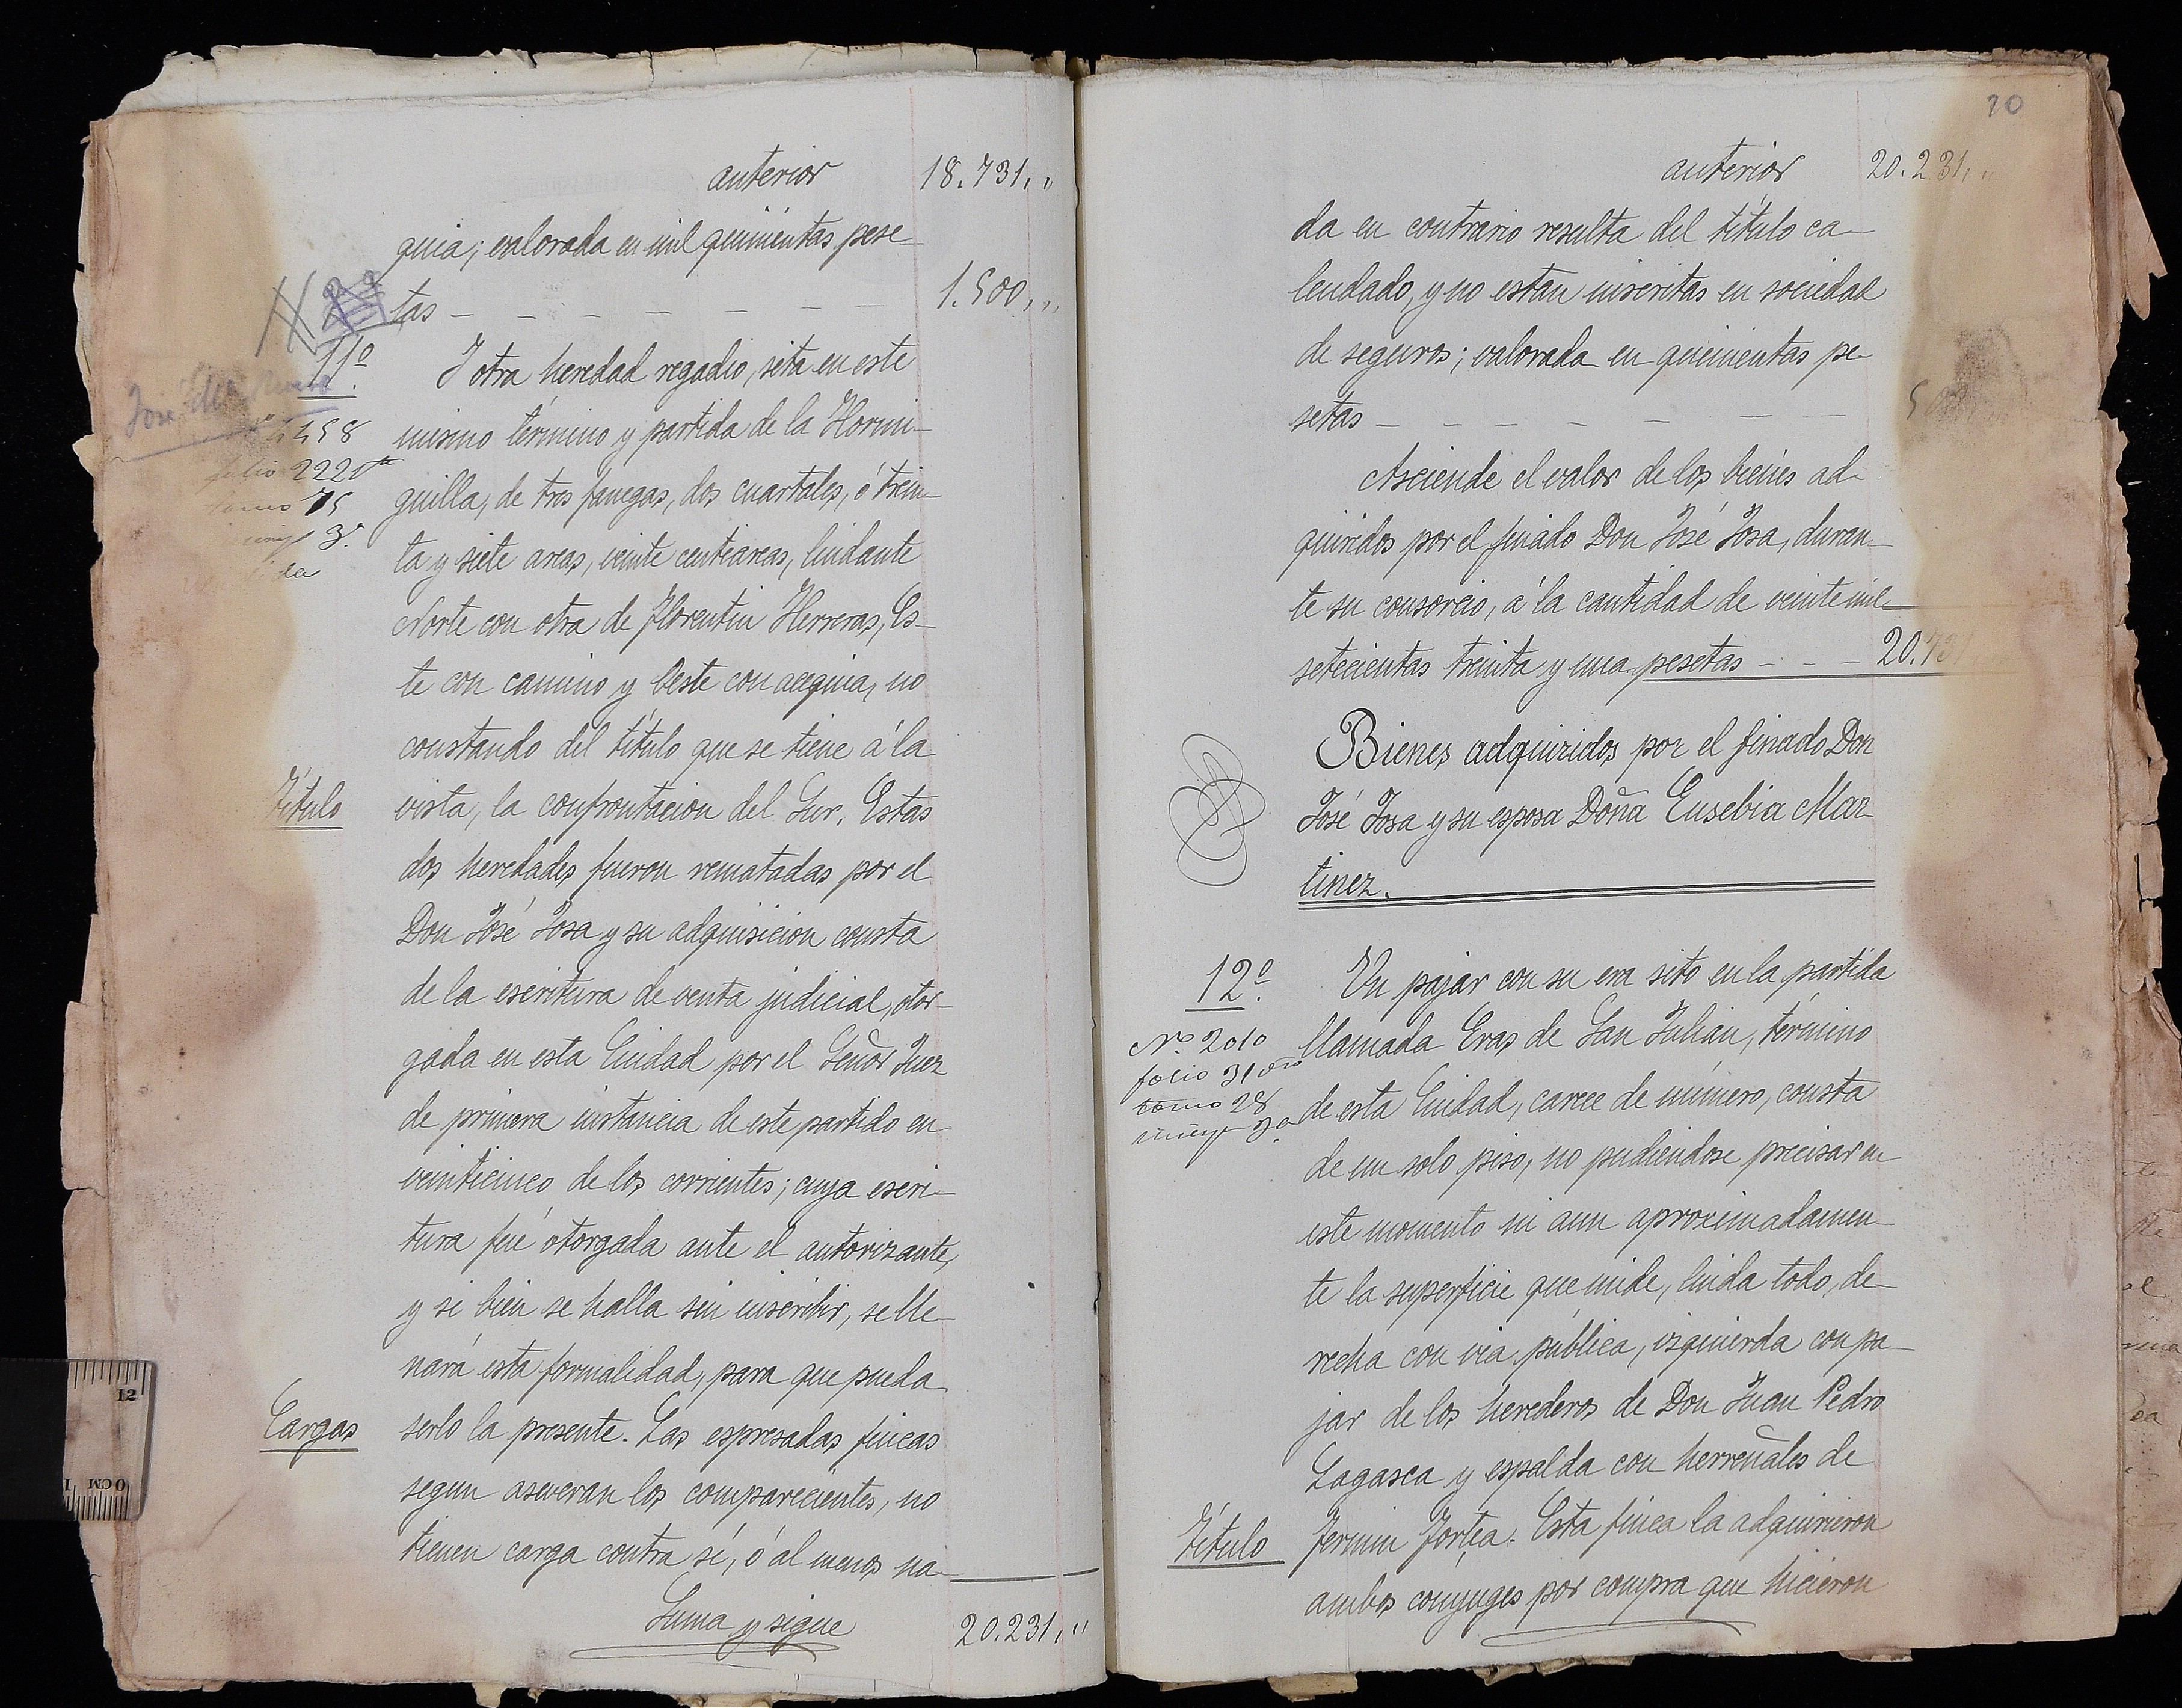 anterior 18.731,,
quia; valorada en mil quinientas pese-
tas - - - - - - - 1.500,,
11º. Y otra heredad regadio, sita en este
4458 mismo término y partida de la Hormi-
folio 222 vto
guilla, de tres fanegas, dos cuartales, ó trein-
tomo 75
ta y siete areas, veinte centiareas, lindante
Norte con otra de Florentin Herreras, Es-
te con camino y Oeste con acequia, no
constando del título que se tiene á la
Título vista, la confrontacion del Sur. Estas
dos heredades fueron rematadas por el
Don José Josa y su adquisicion consta
de la escritura de venta judicial, otor-
gada en esta Ciudad por el Señor Juez
de primera instancia de este partido en
veinticinco de los corrientes; cuya escri-
tura fué otorgada ante el autorizante,
y si bien se halla sin inscribir, se lle-
nará esta formalidad, para que pueda
Cargas serlo la presente. Las espresadas fincas
segun aseveran los comparecientes, no
tienen carga contra sí, ó al menos na-
Suma y sigue 20.231,,
20
anterior 20.231,,
da en contrario resulta del título ca-
lendado, y no estan inscritas en sociedad
de seguros; valorada en quinientas pe-
setas - - - - - - -
Asciende el valor de los bienes ad-
quiridos por el finado Don José Josa, duran-
te su consorcio, á la cantidad de veinte mil
setecientas treinta y una pesetas - - - 20.731
Bienes adquiridos por el finado Don
José Josa y su esposa Doña Eusebia Mar
tinez.
12º. Un pajar con su era sito en la partida
Nº. 2010 llamada Eras de San Julian, término
folio 31 vto
tomo 28 de esta Ciudad, carece de número, consta
de un solo piso, no pudiendose precisar en
este momento ni aun aproximadamen-
te la superficie que mide, linda todo, de-
recha con via pública, izquierda con pa-
jar de los herederos de Don Juan Pedro
Lagasca y espalda con herreñales de
Título Fermin Fortea. Esta finca la adquirieron
ambos conyuges por compra que hicieron